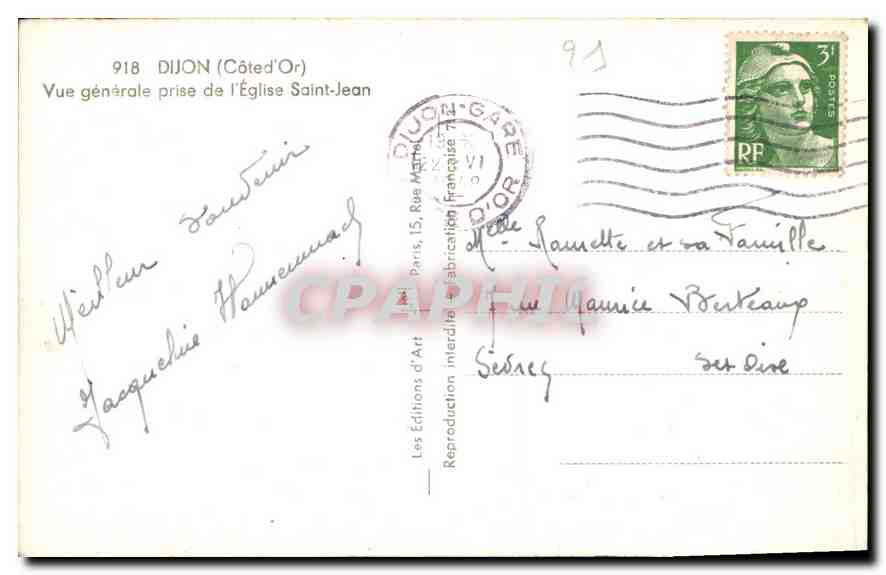 918 DIJON (Côted'Or)
Vue générale prise de l'Église Saint-Jean
91
3f
POSTES
RF
DIJON-GARE
22 VI
D'OR
Meilleur souvenir
Jacqueline
Les Editions d'Art
Paris, 15, Rue Martel
Reproduction interdite - Fabrication Française 712
CPAPHIL
Melle Ramette et sa Famille
7 rue Maurice Berteaux
Sevres Set Oise